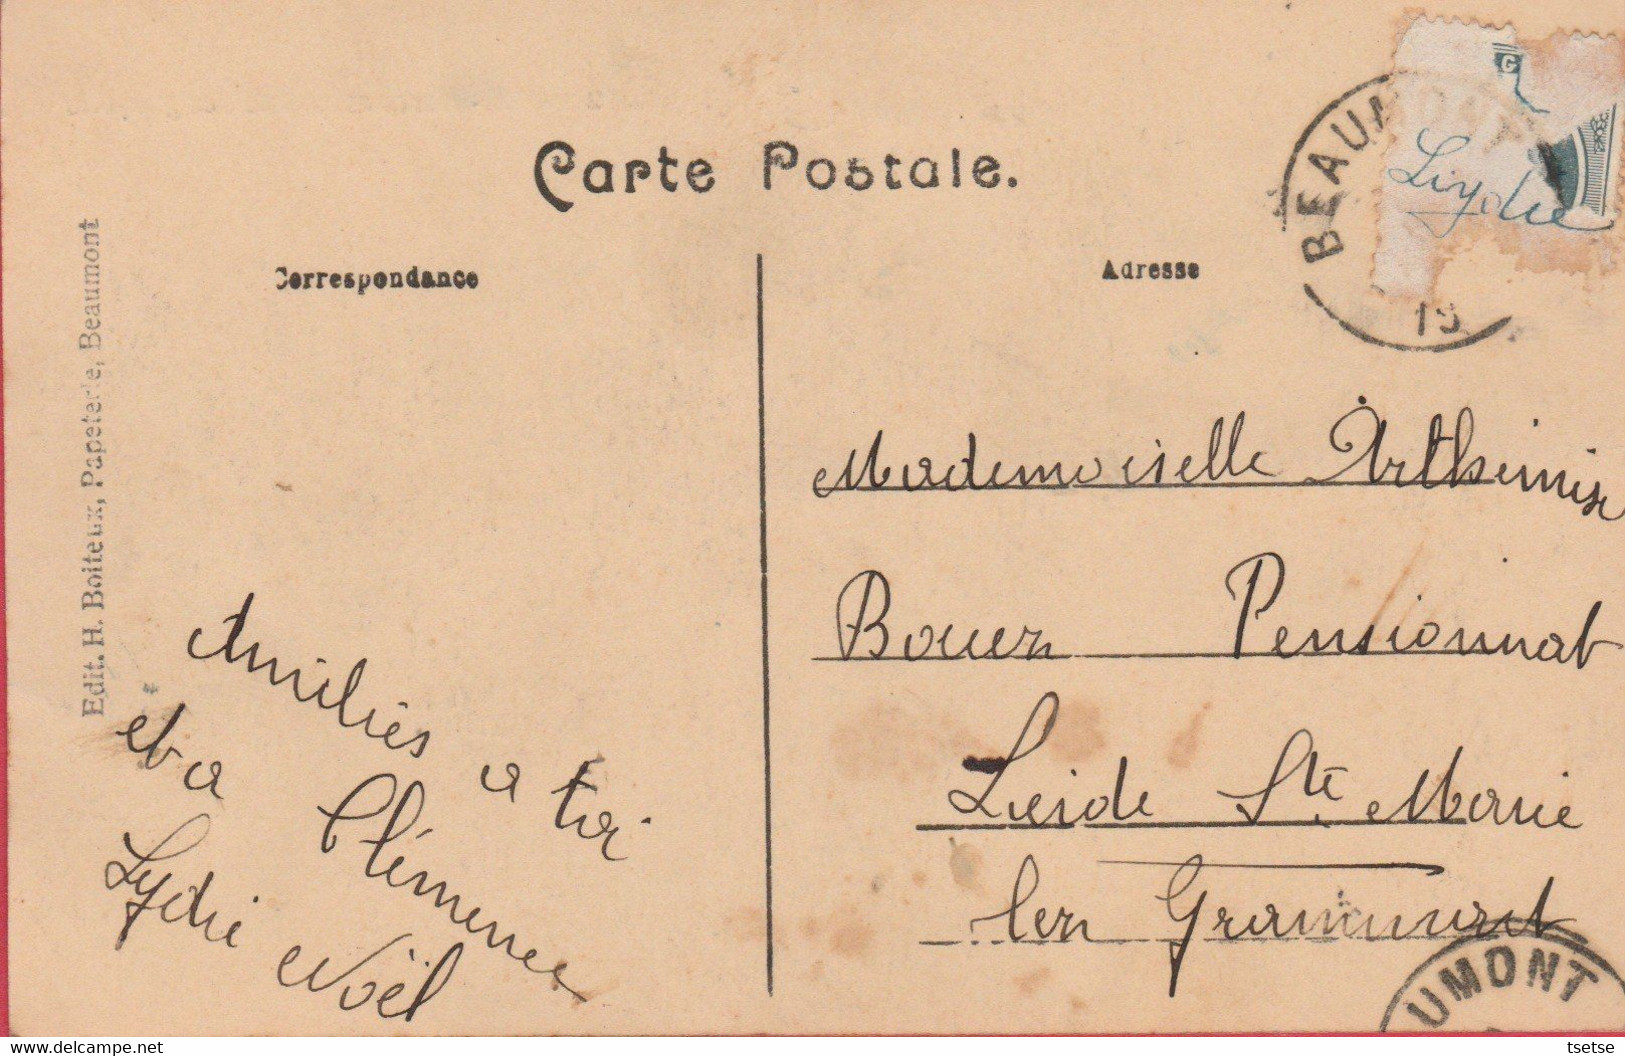 Carte Postale.
Correspondance
Adresse
Edit. H. Boiteux, Papeterie, Beaumont
BEAUMONT
19
G
Lydie
Amitiés a toi
et a Clémence
Lydie Noël
Mademoiselle Arthemise
Bouez Pensionnat
Leide Ste Marie
lez Grammont
UMONT
tsetse